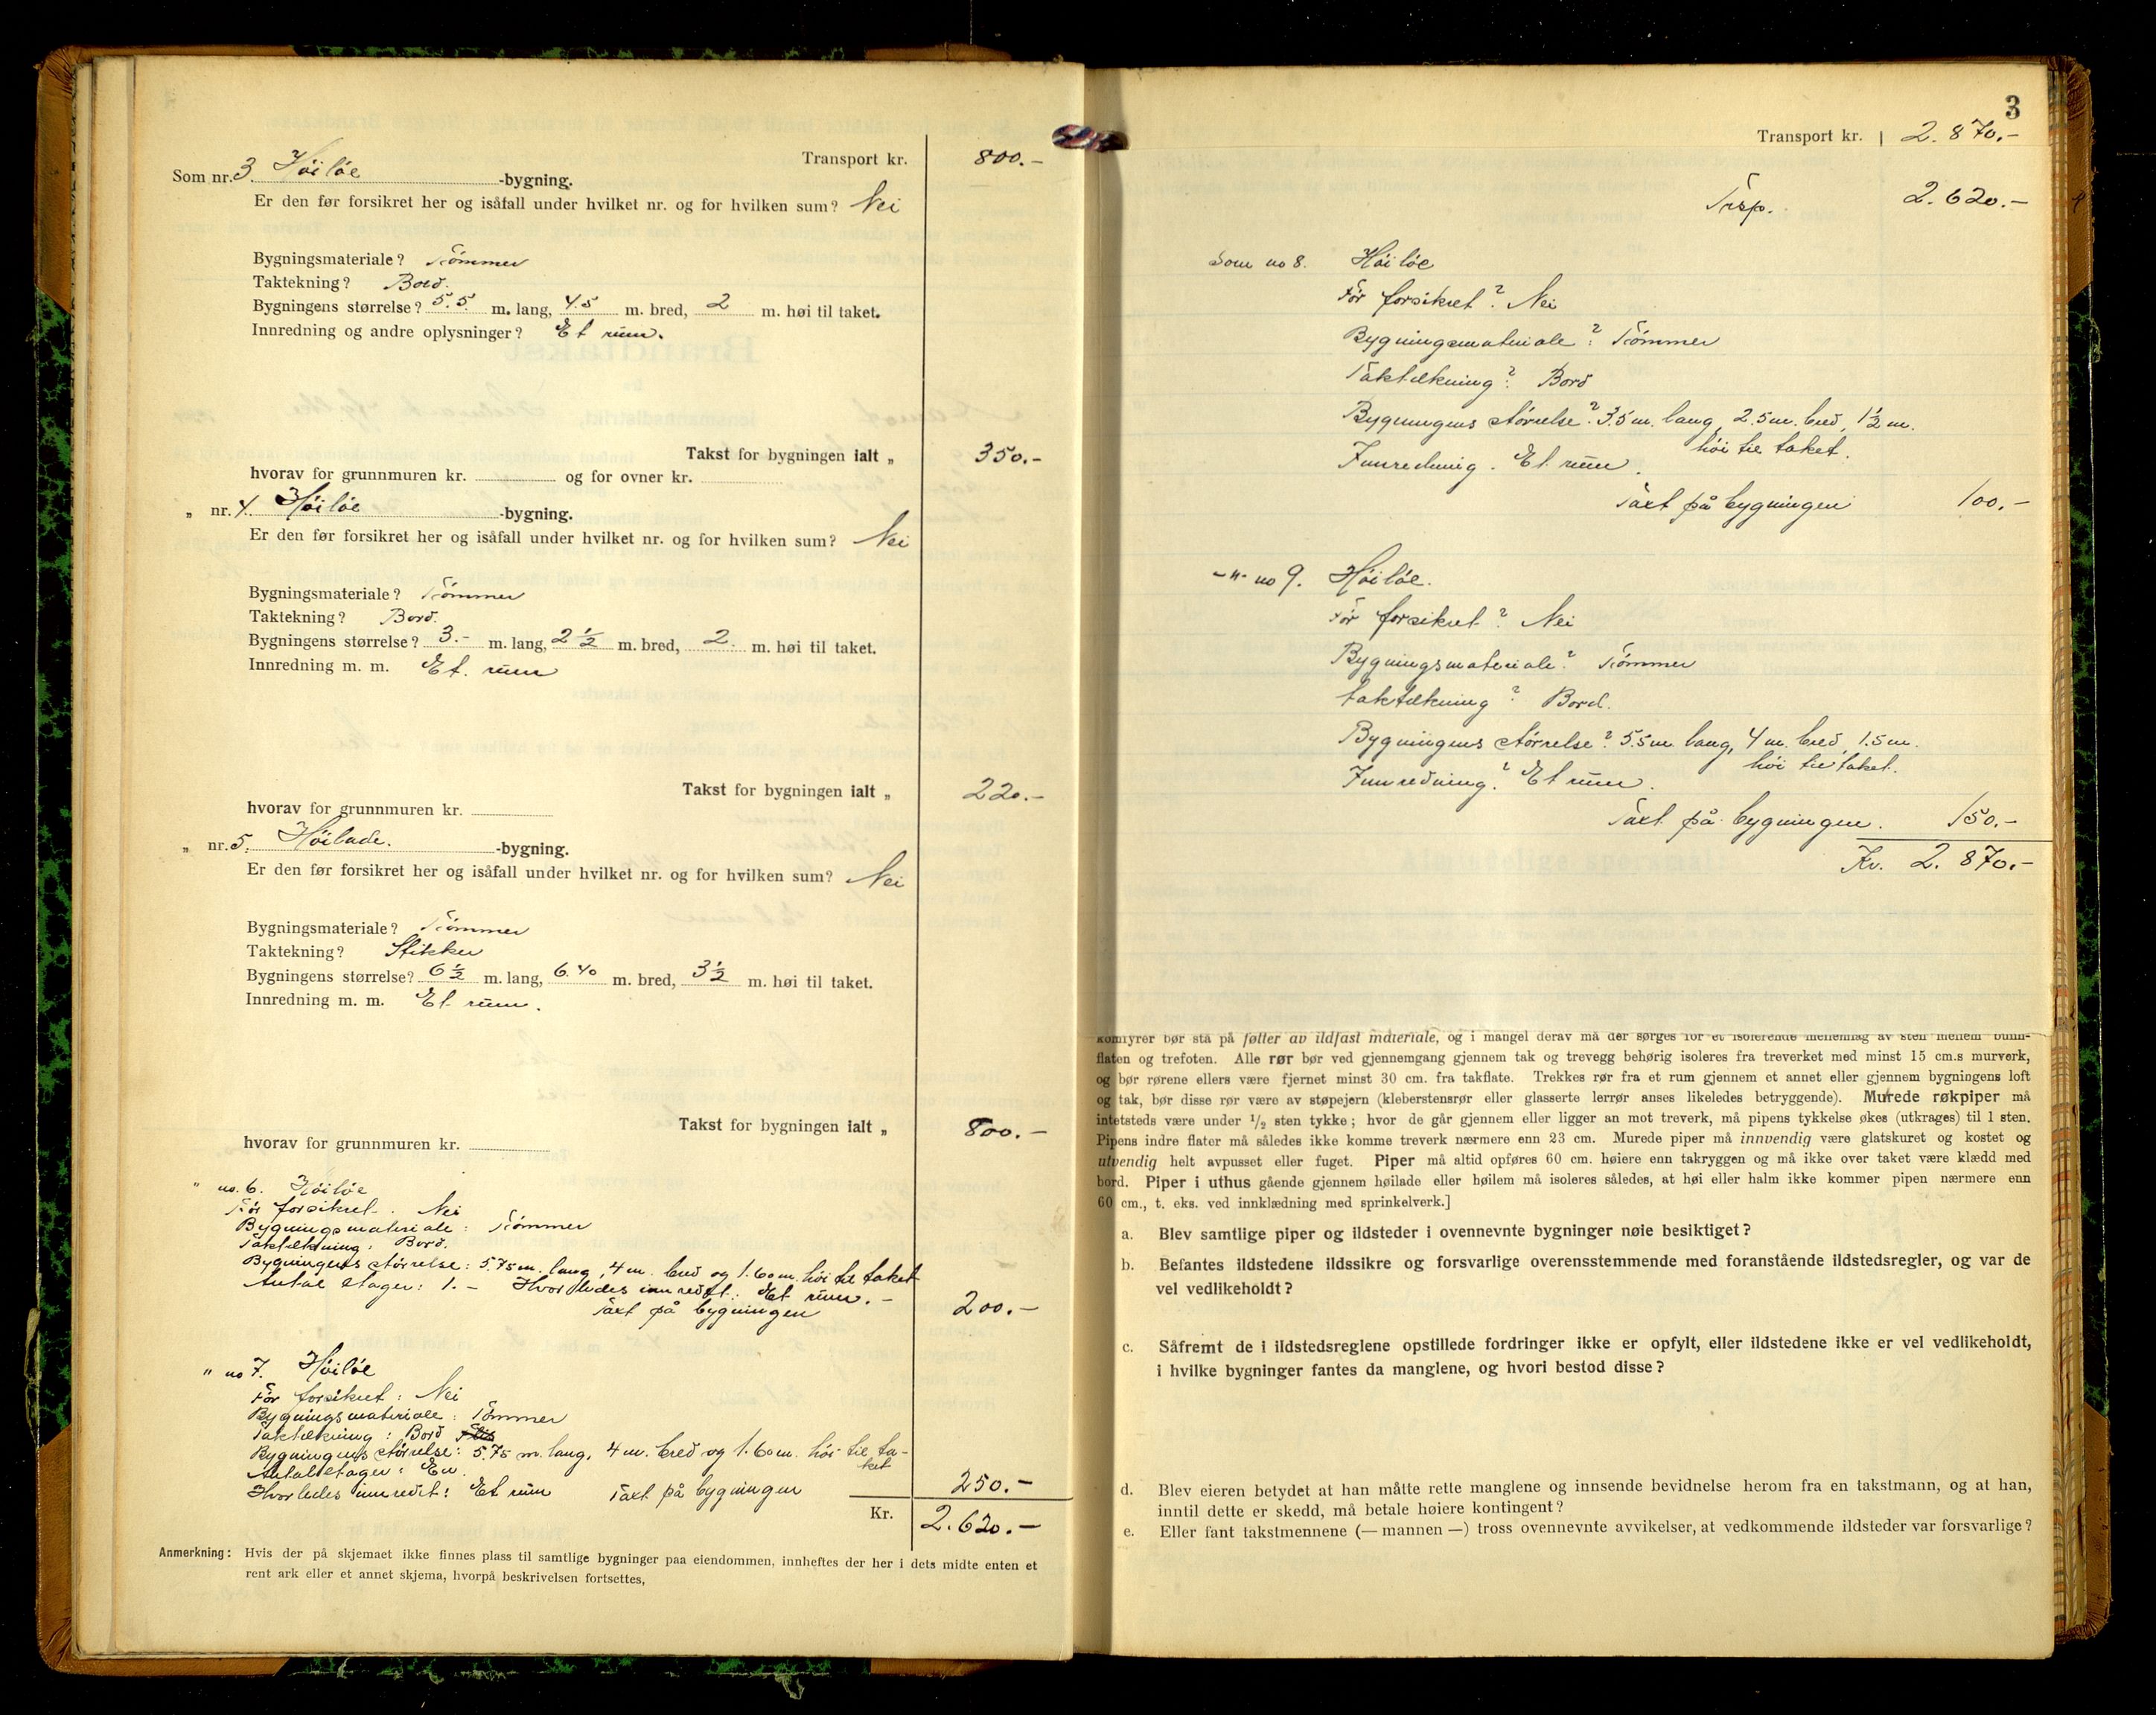 Transport kr. 800.-
Som nr. 3. Høiløe -bygning.
Er den før forsikret her og isåfall under hvilket nr. og for hvilken sum? Nei
Bygningsmateriale? Tømmer
Taktekning? Bord.
Bygningens størrelse? 5.5 m. lang, 4.5 m. bred, 2 m. høi til taket.
Innredning og andre oplysninger? Et rum.
Takst for bygningen ialt „ 350.-
hvorav for grunnmuren kr. og for ovner kr.
„ nr. 4. Høiløe -bygning.
Er den før forsikret her og isåfall under hvilket nr. og for hvilken sum? Nei
Bygningsmateriale? Tømmer
Taktekning? Bord.
Bygningens størrelse? 3.- m. lang, 2 1/2 m. bred, 2. m. høi til taket.
Innredning m. m. Et rum
Takst for bygningen ialt „ 220.-
hvorav for grunnmuren kr.
„ nr. 5. Høilade. -bygning.
Er den før forsikret her og isåfall under hvilket nr. og for hvilken sum? Nei
Bygningsmateriale? Tømmer
Taktekning? Stikker
Bygningens størrelse? 6 1/2 m. lang, 6.40 m. bred, 3 1/2 m. høi til taket.
Innredning m. m. Et rum.
Takst for bygningen ialt „ 800.-
hvorav for grunnmuren kr.
" no. 6. Høiløe
Før forsikret. Nei
Bygningsmateriale: Tømmer
Taktækning: Bord.
Bygningens størrelse: 5.75 m. lang, 4 m. bred og 1.60 m. høi til taket
Antal etager: 1.- Hvorledes innredet: Et rum.-
Taxt på bygningen 200.-
" no 7. Høiløe
Før forsikret: Nei
Bygningsmateriale: Tømmer
Taktækning: Bord
Bygningens størrelse: 5.75 m. lang, 4 m. bred og 1.60 m. høi til ta-
ket
Antal etager: En.
Hvorledes innredet: Et rum Taxt på bygningen 250.-
Kr. 2.620.-
Anmerkning: Hvis der på skjemaet ikke finnes plass til samtlige bygninger paa eiendommen, innheftes der her i dets midte enten et
rent ark eller et annet skjema, hvorpå beskrivelsen fortsettes,
3
Transport kr. 2.870.-
Trsp. 2.620.-
Som no 8. Høiløe
Før forsikret? Nei
Bygningsmateriale? Tømmer
Taktækning? Bord
Bygningens størrelse? 3.5 m. lang, 2.5 m. bred, 1 1/2 m.
høi til taket.
Innredning. Et rum.
Taxt på bygningen 100.-
-"- no 9. Høiløe.
Før forsikret? Nei
Bygningsmateriale? Tømmer
Taktækning? Bord.
Bygningens størrelse? 5.5 m. lang, 4 m. bred, 1.5 m.
høi til taket.
Innredning? Et rum.
Taxt på bygningen. 150.-
Kr. 2.870.-
komfyrer bør stå på føtter av ildfast materiale, og i mangel derav må der sørges for et isolerende mellemlag av sten mellem bunn-
flaten og trefoten. Alle rør bør ved gjennemgang gjennem tak og trevegg behørig isoleres fra treverket med minst 15 cm.s murverk,
og bør rørene ellers være fjernet minst 30 cm. fra takflate. Trekkes rør fra et rum gjennem et annet eller gjennem bygningens loft
og tak, bør disse rør være av støpejern (kleberstensrør eller glasserte lerrør anses likeledes betryggende). Murede røkpiper må
intetsteds være under 1/2 sten tykke; hvor de går gjennem eller ligger an mot treverk, må pipens tykkelse økes (utkrages) til 1 sten.
Pipens indre flater må således ikke komme treverk nærmere enn 23 cm. Murede piper må innvendig være glatskuret og kostet og
utvendig helt avpusset eller fuget. Piper må altid opføres 60 cm. høiere enn takryggen og må ikke over taket være klædd med
bord. Piper i uthus gående gjennem høilade eller høilem må isoleres således, at høi eller halm ikke kommer pipen nærmere enn
60 cm., t. eks. ved innklædning med sprinkelverk.]
a. Blev samtlige piper og ildsteder i ovennevnte bygninger nøie besiktiget?
b. Befantes ildstedene ildssikre og forsvarlige overensstemmende med foranstående ildstedsregler, og var de
vel vedlikeholdt?
c. Såfremt de i ildstedsreglene opstillede fordringer ikke er opfylt, eller ildstedene ikke er vel vedlikeholdt,
i hvilke bygninger fantes da manglene, og hvori bestod disse?
d. Blev eieren betydet at han måtte rette manglene og innsende bevidnelse herom fra en takstmann, og at han,
inntil dette er skedd, må betale høiere kontingent?
e. Eller fant takstmennene (— mannen —) tross ovennevnte avvikelser, at vedkommende ildsteder var forsvarlige?